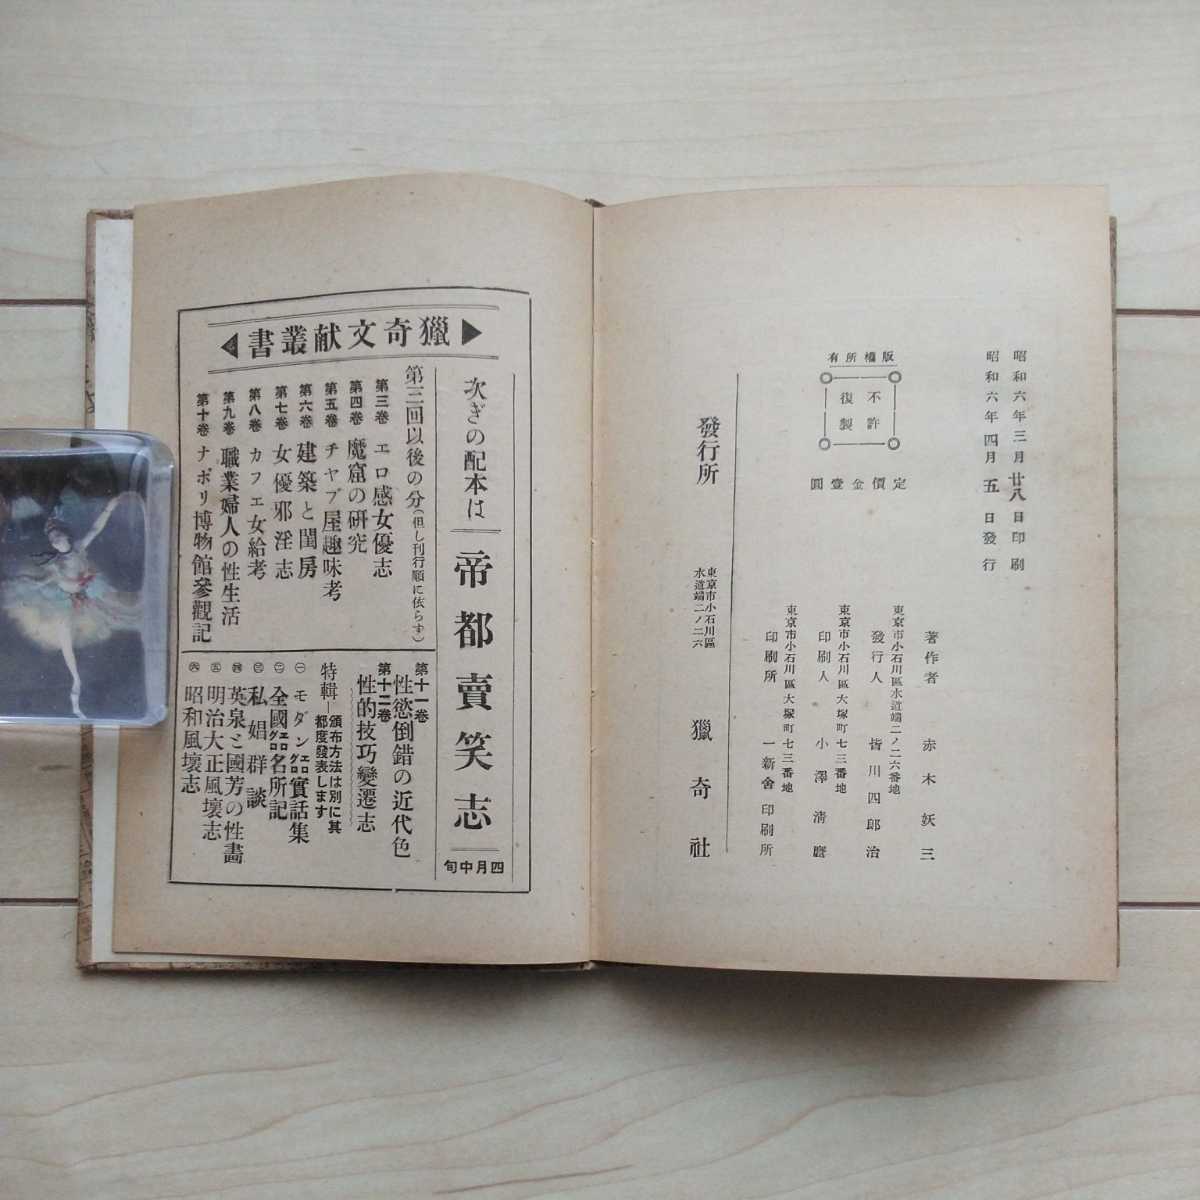 昭和六年三月廿八日印刷
昭和六年四月五日發行
版權所有
不許
復製
定價金壹圓
著作者 赤木妖三
東京市小石川區水道端二ノ二六番地
發行人 皆川四郎治
東京市小石川區大塚町七三番地
印刷人 小澤淸麿
東京市小石川區大塚町七三番地
印刷所 一新舍印刷所
發行所
東京市小石川區
水道端二ノ二六
獵奇社
獵奇文献叢書
次ぎの配本は
帝都賣笑志
四月中旬
第三回以後の分(但し刊行順に依らず)
第三卷 エロ感女優志
第四卷 魔窟の研究
第五卷 チヤブ屋趣味考
第六卷 建築と閨房
第七卷 女優邪淫志
第八卷 カフエ女給考
第九卷 職業婦人の性生活
第十卷 ナポリ博物館參觀記
第十一卷 性慾倒錯の近代色
第十二卷 性的技巧變遷志
特輯―頒布方法は別に其
都度發表します
㊀ モダンエログロ實話集
㊁ 全國エログロ名所記
㊂ 私娼群談
㊃ 英泉と國芳の性畵
㊄ 明治大正風壞志
㊅ 昭和風壞志